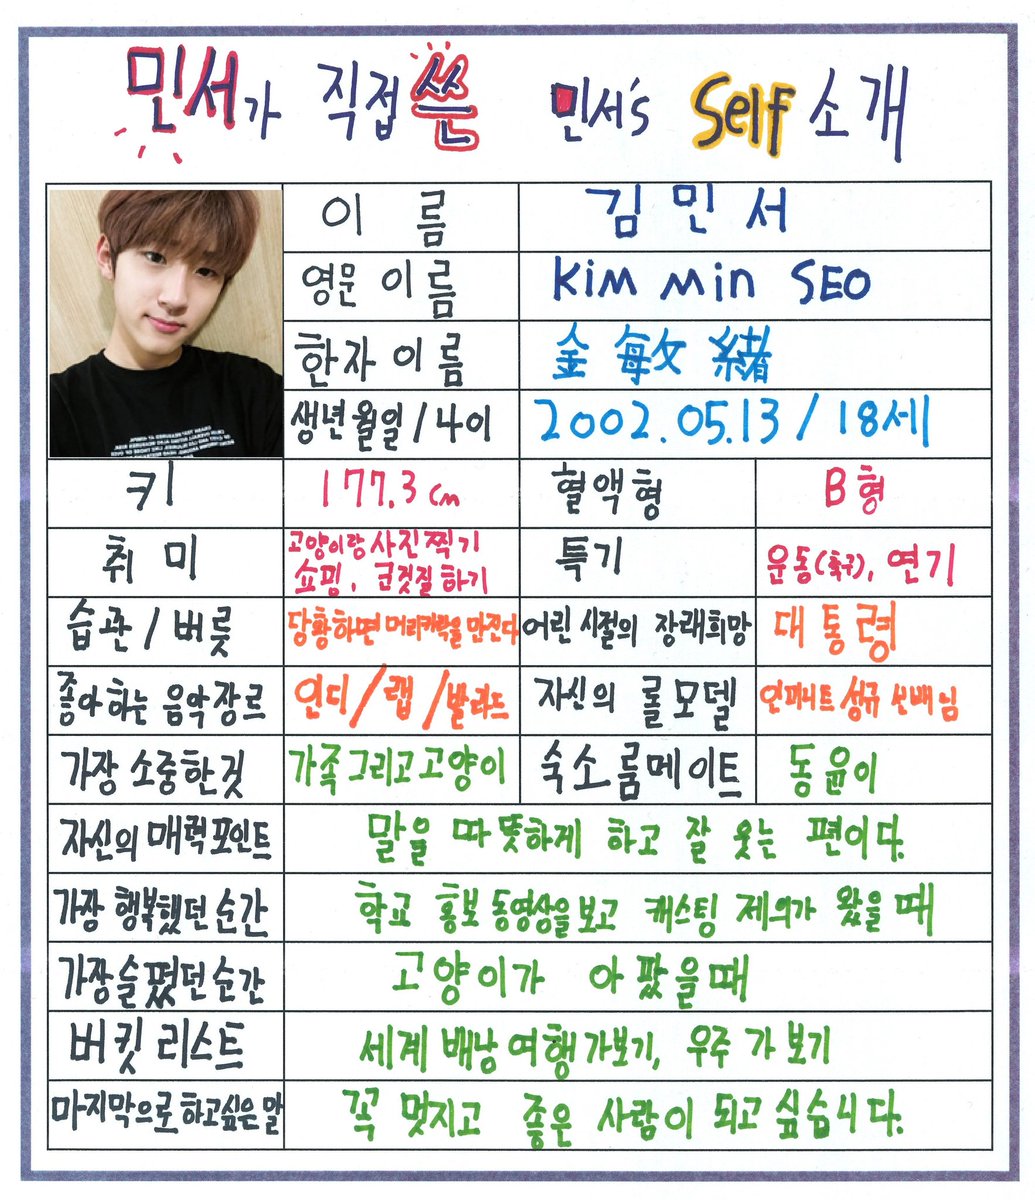 민서가 직접 쓴 민서's Self 소개
이름 김민서
영문이름 KiM Min SEO
한자이름 金敏緖
생년월일/나이 2002.05.13 / 18세
키 177.3cm 혈액형 B형
취미 고양이랑 사진찍기
쇼핑, 군것질하기 특기 운동(축구), 연기
습관/버릇 당황하면 머리카락을 만진다 어린시절의 장래희망 대통령
좋아하는 음악장르 인디/랩/발라드 자신의 롤모델 인피니트 성규 선배님
가장 소중한것 가족그리고고양이 숙소룸메이트 동윤이
자신의 매력포인트 말을 따뜻하게 하고 잘 웃는 편이다.
가장 행복했던 순간 학교 홍보 동영상을보고 캐스팅 제의가 왔을때
가장슬펐던순간 고양이가 아팠을때
버킷리스트 세계 배낭여행가보기, 우주 가보기
마지막으로 하고싶은 말 꼭 멋지고 좋은 사람이 되고싶습니다.